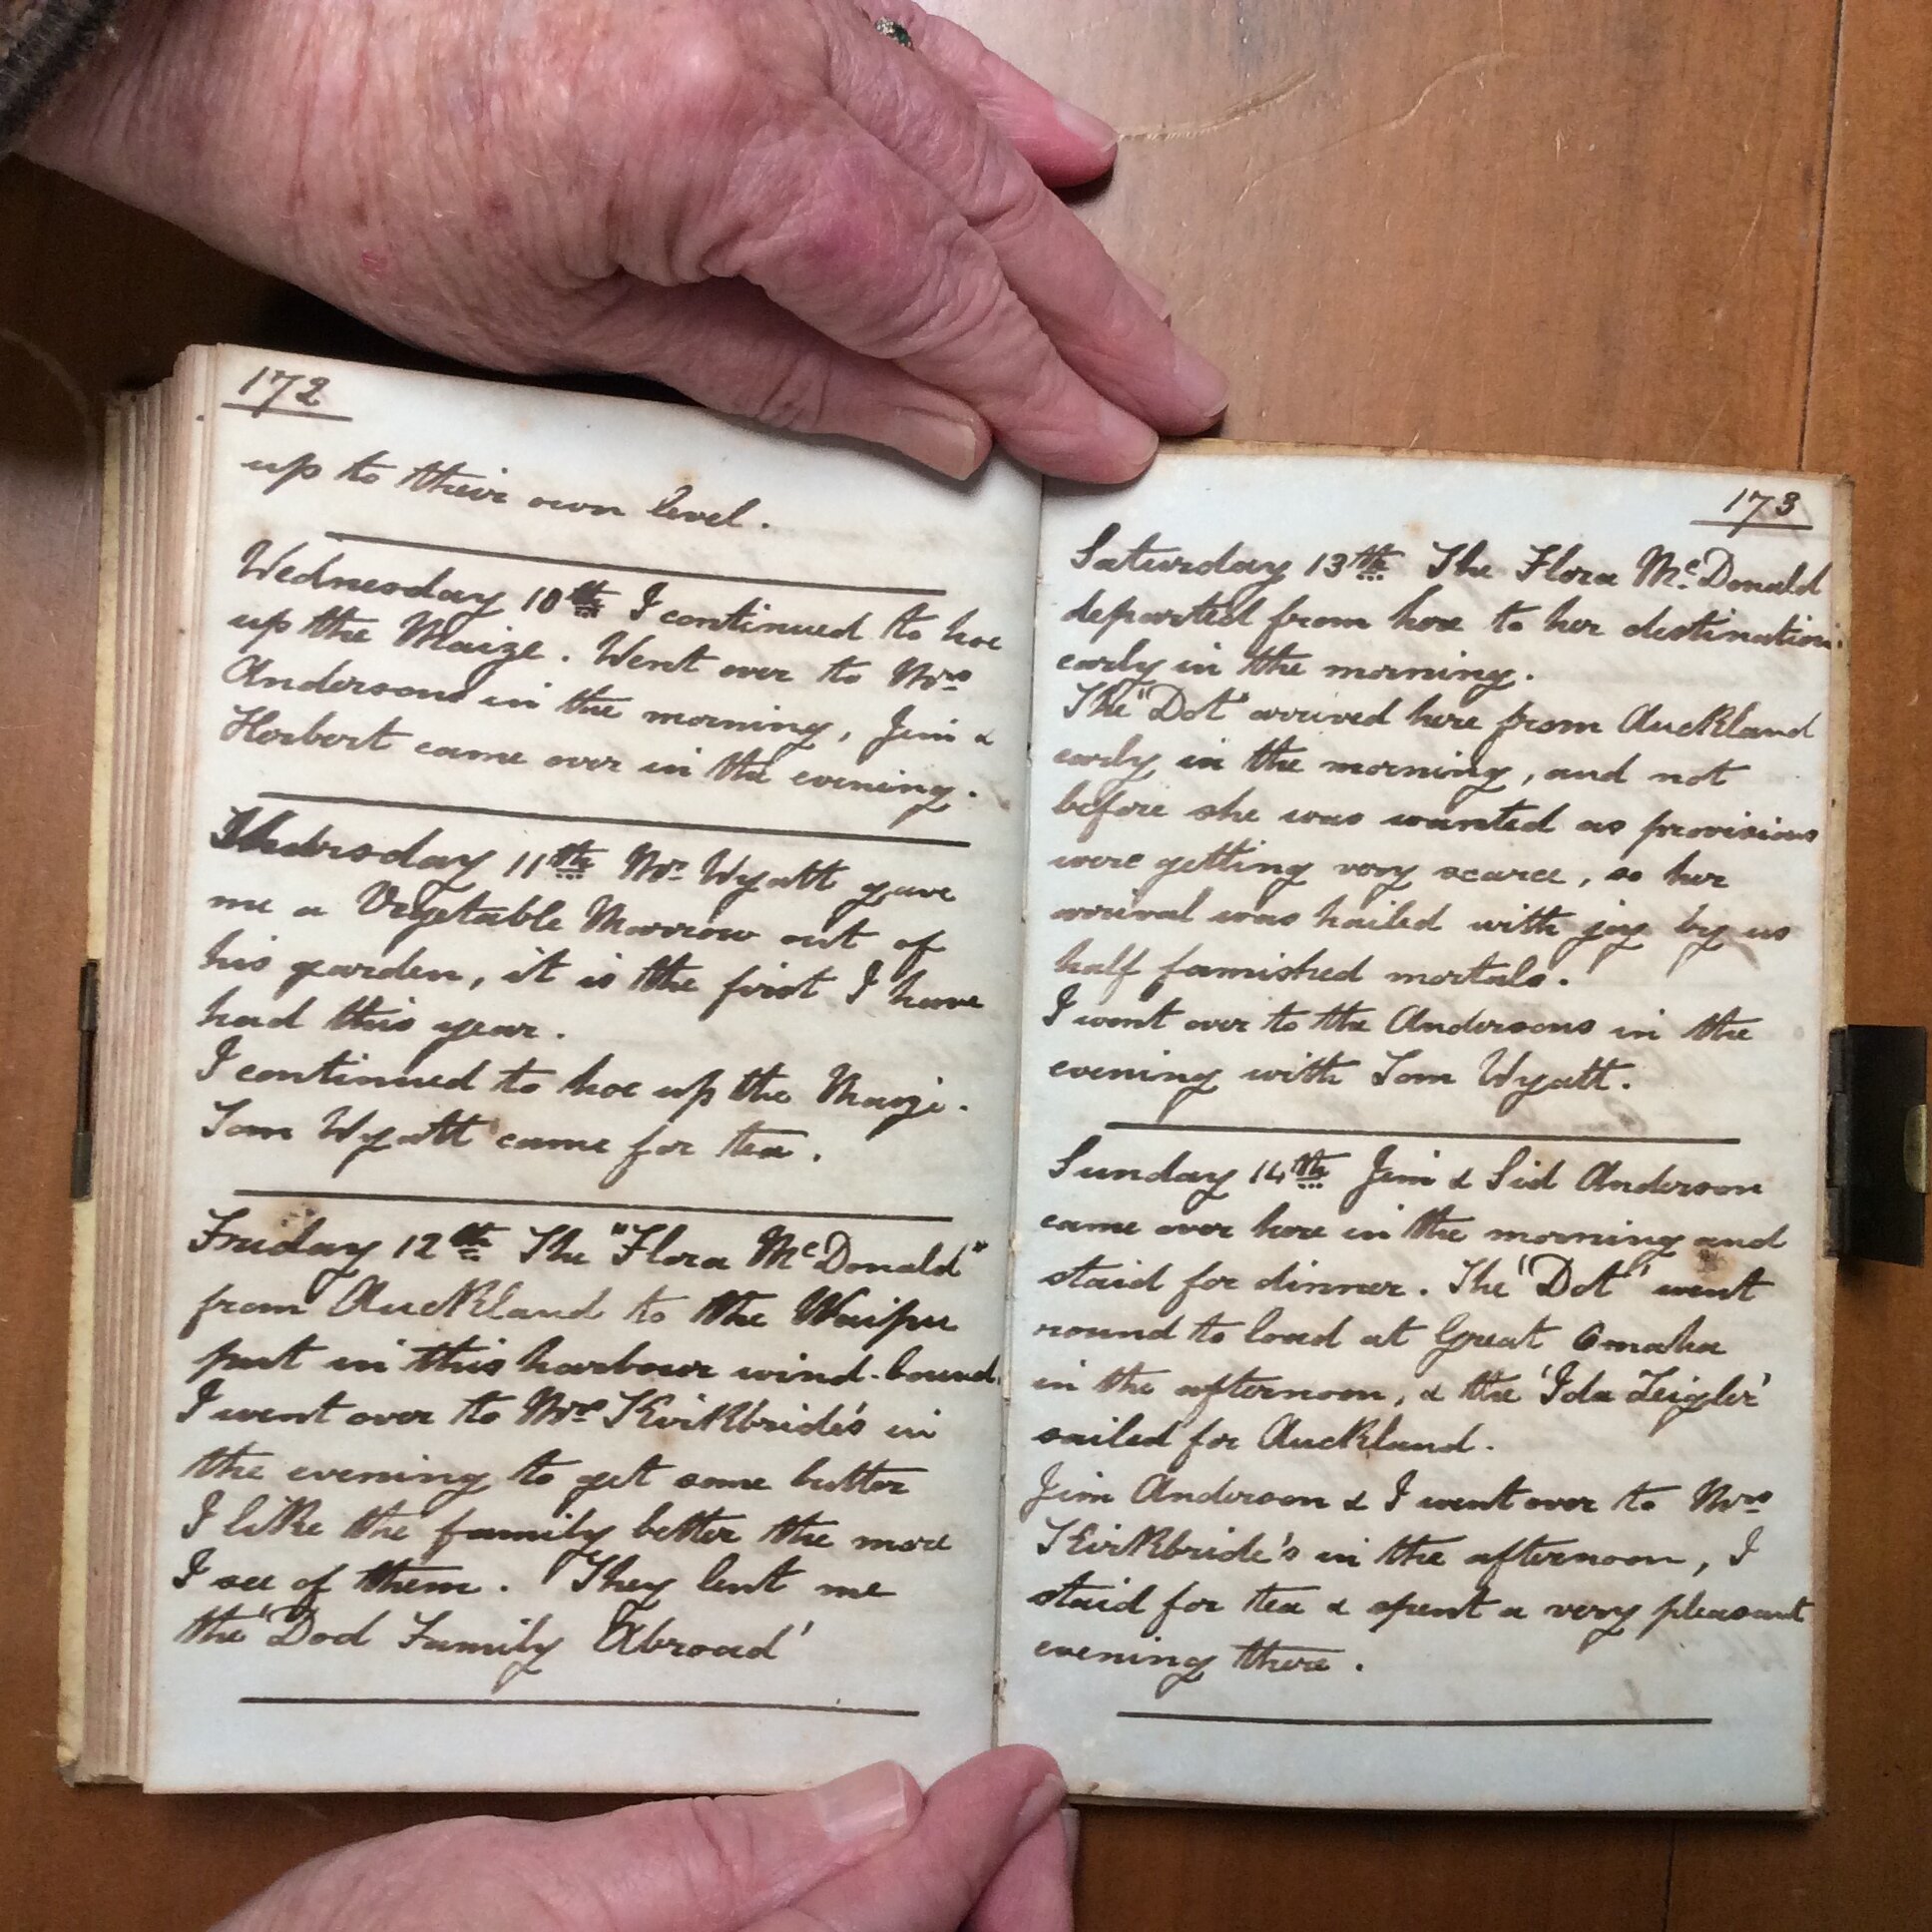 172
up to their own level.
Wednesday 10th I continued to hoe
up the Maize. Went over to Mrs
Andersons in the morning, Jim &
Herbert came over in the evening.
Thursday 11th Mr. Wyatt gave
me a Vegetable Marrow out of
his garden, it is the first I have
had this year.
I continued to hoe up the Maize.
Tom Wyatt came for tea.
Friday 12th The "Flora McDonald"
from Auckland to the Waipu
put in this harbour wind-bound.
I went over to Mrs Kirkbride's in
the evening to get some butter
I like the family better the more
I see of them. They lent me
the 'Dod Family Abroad'
173
Saturday 13th The Flora McDonald
departed from here to her destination
early in the morning.
The "Dot" arrived here from Auckland
early in the morning, and not
before she was wanted as provisions
were getting very scarce, so her
arrival was hailed with joy by us
half famished mortals.
I went over to the Andersons in the
evening with Tom Wyatt.
Sunday 14th Jim & Sid Anderson
came over here in the morning and
staid for dinner. The 'Dot' went
round to load at Great Omaha
in the afternoon, & the 'Ida Zeigler'
sailed for Auckland.
Jim Anderson & I went over to Mrs
Kirkbride's in the afternoon, I
staid for tea & spent a very pleasant
evening there.